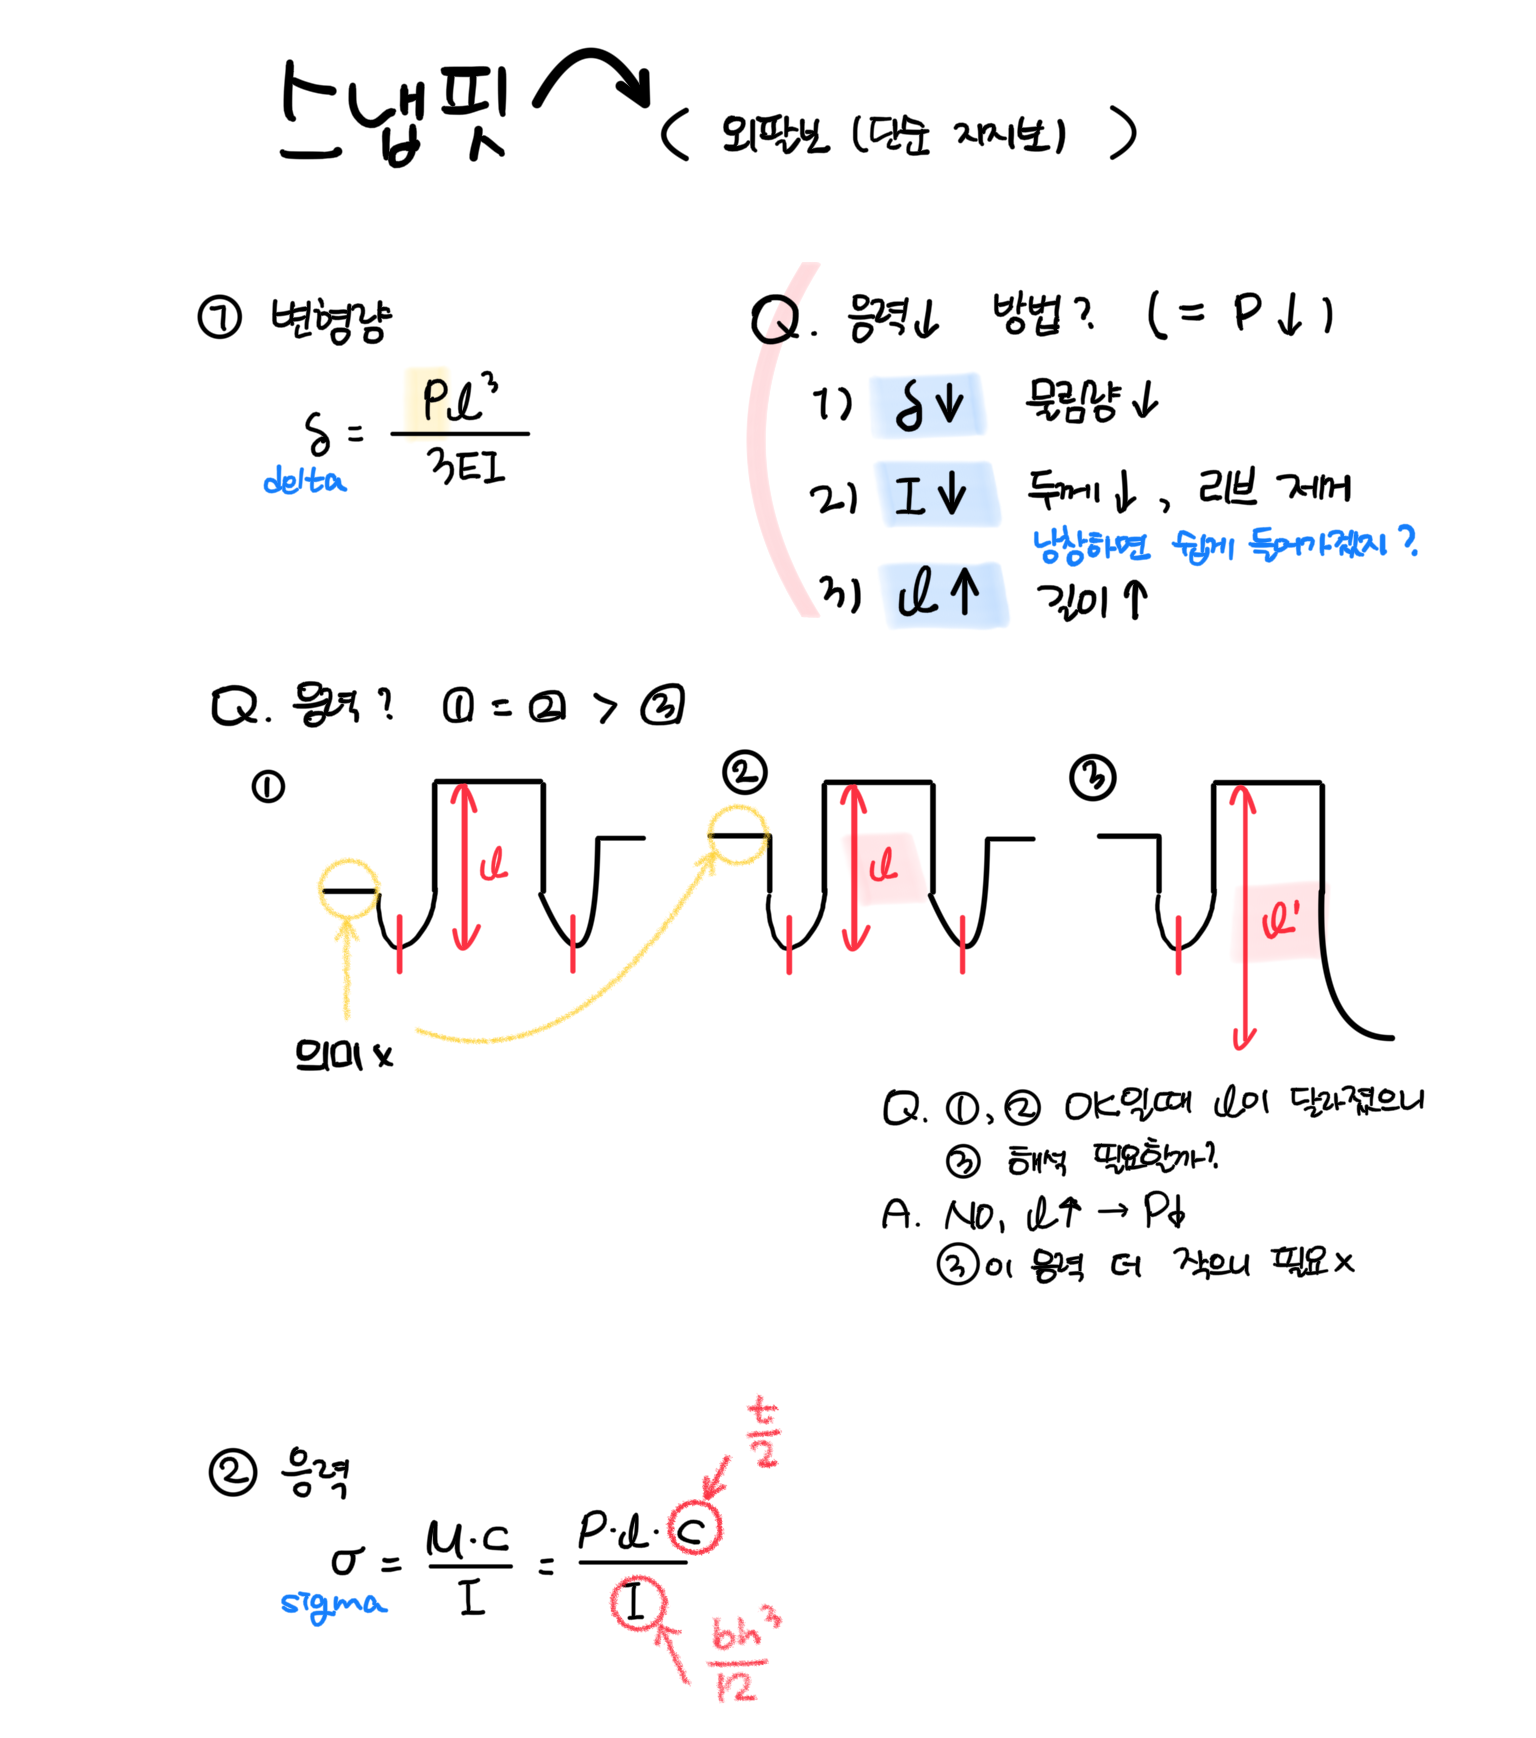 스냅핏
( 외팔보 (단순 지지보) )
① 변형량
δ = Pl³ / 3EI
delta
Q. 응력↓ 방법? (= P↓)
1) δ↓ 물림량↓
2) I↓ 두께↓, 리브 제거
낭창하면 쉽게 들어가겠지?
3) l↑ 길이↑
Q. 응력? ① = ② > ③
① ② ③
l l l'
의미 x
Q. ①, ② OK일때 l이 달라졌으니
③ 해석 필요할까?
A. NO, l↑ → P↓
③이 응력 더 작으니 필요 x
② 응력
σ = M·C / I = P·l·C / I
sigma
t/2
bh³/12